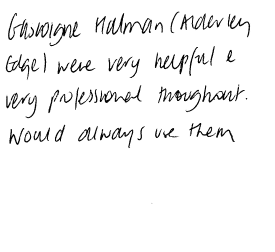 Gascoigne Halman (Alderley
Edge) were very helpful &
very professional throughout.
Would always use them